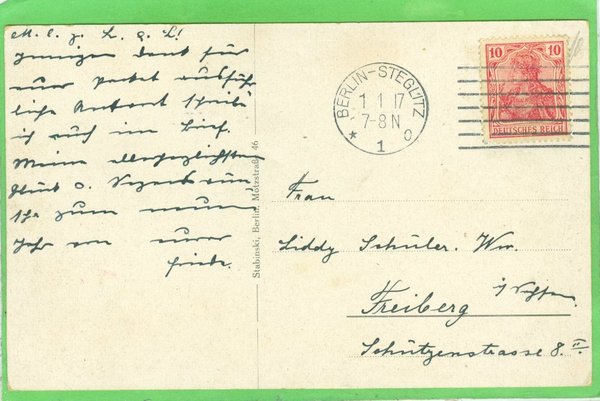 M. l. g. L. & L!
Innigen Dank für
ausführ-
liche Antwort
ich euch im Brief.
Meine allerherzlichsten
Glück u.
zum neuen
Jahr von eurer
Stabinski, Berlin, Motzstraße 46
BERLIN-STEGLITZ
1 1 17
7-8 N
* 1 o
10 10
DEUTSCHES REICH
Frau
Liddy Schüler. Ww.
Freiberg
i/ Sachsen
Schützenstrasse 8. II.